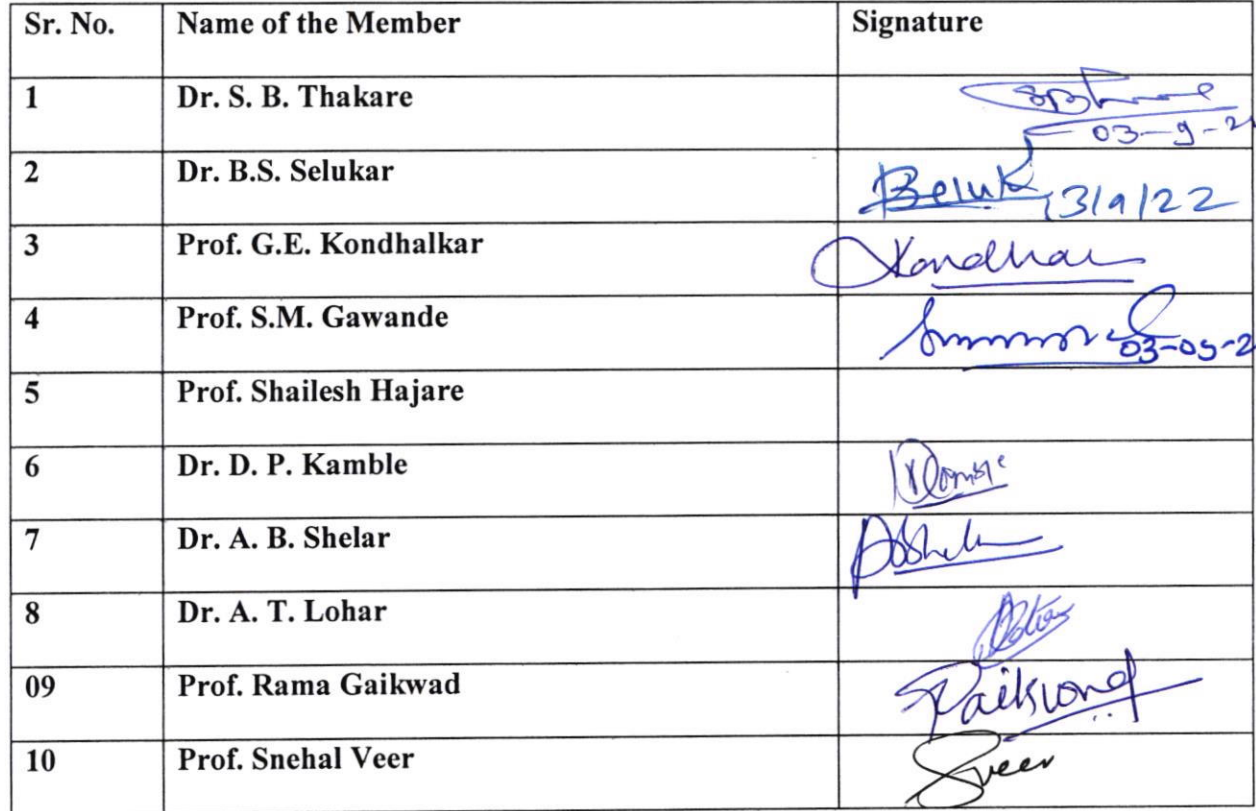 Sr. No. Name of the Member Signature
1 Dr. S. B. Thakare
03-9-2
2 Dr. B.S. Selukar
3/9/22
3 Prof. G.E. Kondhalkar
4 Prof. S.M. Gawande
03-09-2
5 Prof. Shailesh Hajare
6 Dr. D. P. Kamble
7 Dr. A. B. Shelar
8 Dr. A. T. Lohar
09 Prof. Rama Gaikwad
10 Prof. Snehal Veer Sveer